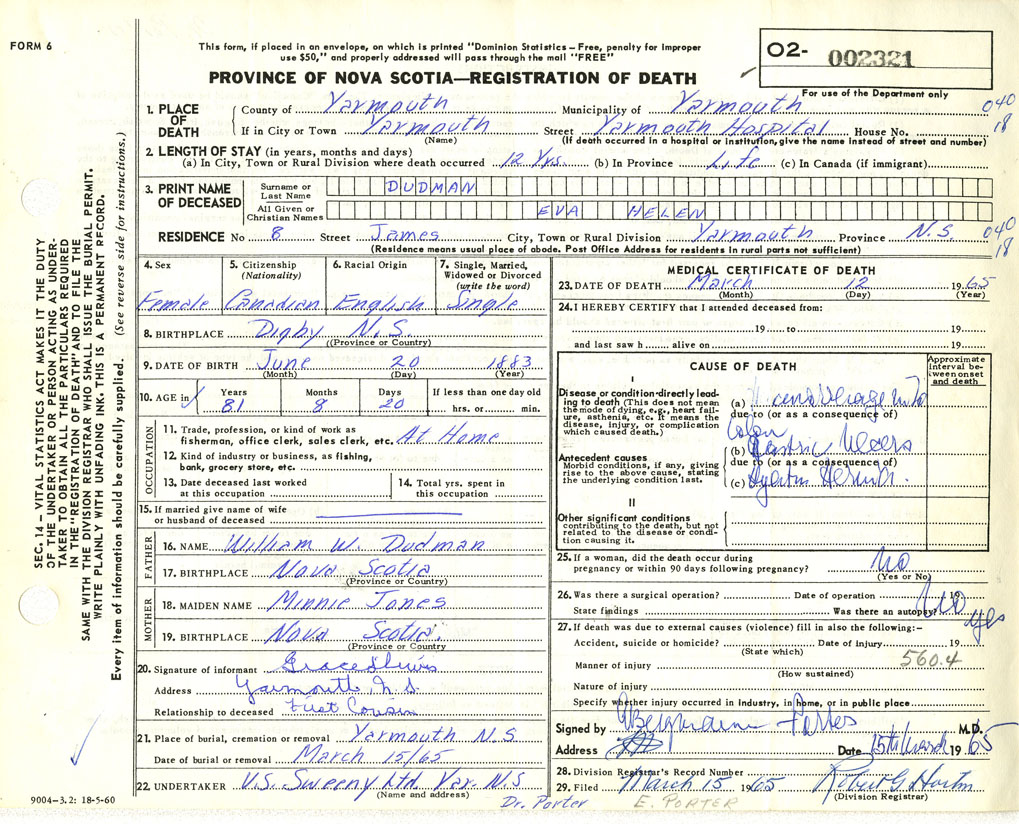 FORM 6
This form, if placed in an envelope, on which is printed "Dominion Statistics – Free, penalty for improper
use $50," and properly addressed will pass through the mail "FREE"
PROVINCE OF NOVA SCOTIA—REGISTRATION OF DEATH
O2- 002321
For use of the Department only
1. PLACE OF DEATH
County of Yarmouth Municipality of Yarmouth 040
If in City or Town Yarmouth Street Yarmouth Hospital House No. 18
(Name) (If death occurred in a hospital or institution, give the name instead of street and number)
2. LENGTH OF STAY (in years, months and days)
(a) In City, Town or Rural Division where death occurred 12 Yrs. (b) In Province Life (c) In Canada (if immigrant)
3. PRINT NAME OF DECEASED
Surname or Last Name DUDMAN
All Given or Christian Names EVA HELEN
RESIDENCE No 8 Street James City, Town or Rural Division Yarmouth Province N.S. 040 18
(Residence means usual place of abode. Post Office Address for residents in rural parts not sufficient)
4. Sex Female
5. Citizenship (Nationality) Canadian
6. Racial Origin English
7. Single, Married, Widowed or Divorced (write the word) Single
8. BIRTHPLACE Digby N.S.
(Province or Country)
9. DATE OF BIRTH June 20 1883
(Month) (Day) (Year)
10. AGE in Years 81 Months 8 Days 20 If less than one day old hrs. or min.
OCCUPATION
11. Trade, profession, or kind of work as
fisherman, office clerk, sales clerk, etc. At Home
12. Kind of industry or business, as fishing,
bank, grocery store, etc.
13. Date deceased last worked
at this occupation
14. Total yrs. spent in
this occupation
15. If married give name of wife
or husband of deceased
FATHER
16. NAME William W. Dudman
17. BIRTHPLACE Nova Scotia
(Province or Country)
MOTHER
18. MAIDEN NAME Minnie Jones
19. BIRTHPLACE Nova Scotia
(Province or Country)
20. Signature of informant Grace
Address Yarmouth, N.S.
Relationship to deceased First Cousin
21. Place of burial, cremation or removal Yarmouth N.S
Date of burial or removal March 15/65
22. UNDERTAKER V.S. Sweeny Ltd Yar. N.S
(Name and address)
9004–3.2: 18-5-60
MEDICAL CERTIFICATE OF DEATH
23. DATE OF DEATH March 12 1965
(Month) (Day) (Year)
24. I HEREBY CERTIFY that I attended deceased from:
19 to 19
and last saw h alive on 19
CAUSE OF DEATH
Approximate interval between onset and death
I
Disease or condition directly leading to death (This does not mean the mode of dying, e.g., heart failure, asthenia, etc. It means the disease, injury, or complication which caused death.)
(a) Haemorrhage into
due to (or as a consequence of)
Colon
(b) Gastric Ulcers
Antecedent causes
Morbid conditions, if any, giving rise to the above cause, stating the underlying condition last.
due to (or as a consequence of)
(c) Hyatus Hernia.
II
Other significant conditions
contributing to the death, but not related to the disease or condition causing it.
25. If a woman, did the death occur during
pregnancy or within 90 days following pregnancy? No
(Yes or No)
26. Was there a surgical operation? Date of operation 19
State findings Was there an autopsy? No yes
27. If death was due to external causes (violence) fill in also the following:–
Accident, suicide or homicide? Date of injury 19
(State which)
560.4
Manner of injury
(How sustained)
Nature of injury
Specify whether injury occurred in Industry, in home, or in public place
Signed by M.D.
Address Date 15th March 1965
28. Division Registrar's Record Number
29. Filed March 15 1965 Robert G
(Division Registrar)
Dr. Porter E. PORTER
SEC. 14 – VITAL STATISTICS ACT MAKES IT THE DUTY
OF THE UNDERTAKER OR PERSON ACTING AS UNDER-
TAKER TO OBTAIN ALL THE PARTICULARS REQUIRED
IN THE "REGISTRATION OF DEATH" AND TO FILE THE
SAME WITH THE DIVISION REGISTRAR WHO SHALL ISSUE THE BURIAL PERMIT.
WRITE PLAINLY WITH UNFADING INK. THIS IS A PERMANENT RECORD.
Every item of information should be carefully supplied. (See reverse side for instructions.)